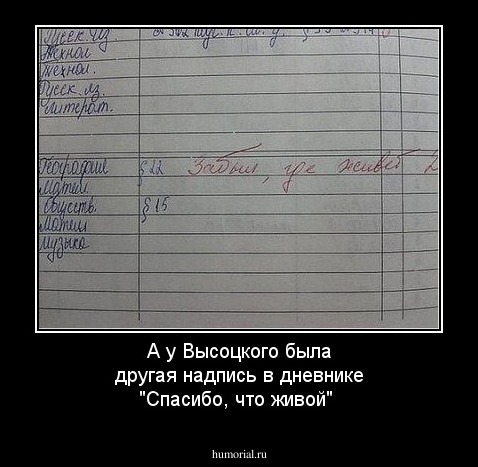 Русск. яз.
Технол
Технол.
Русск. яз.
Литерат.
География § 22 Забыл, где живёт 2
Матем.
Обществ. § 15
Матем
Музыка
А у Высоцкого была
другая надпись в дневнике
"Спасибо, что живой"
humorial.ru